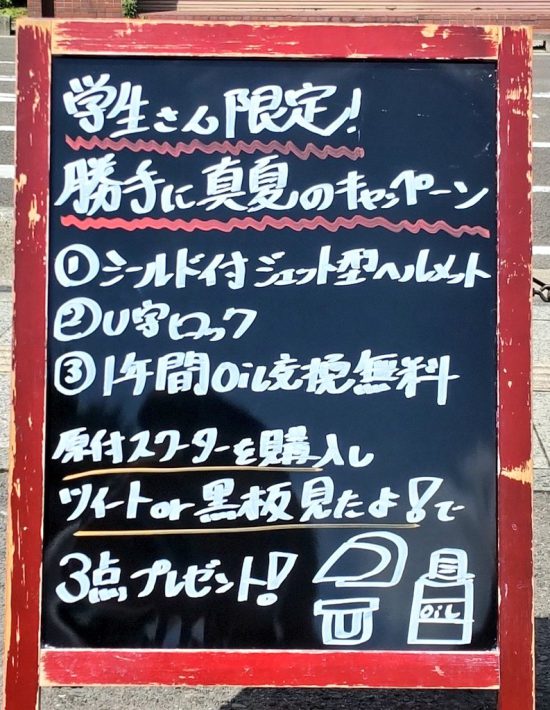 学生さん限定!
勝手に真夏のキャンペーン
①シールド付ジェット型ヘルメット
②U字ロック
③1年間Oil交換無料
原付スクーターを購入し
ツイートor黒板見たよ!で
3点プレゼント!
OiL